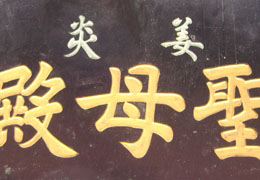 姜炎
聖母殿